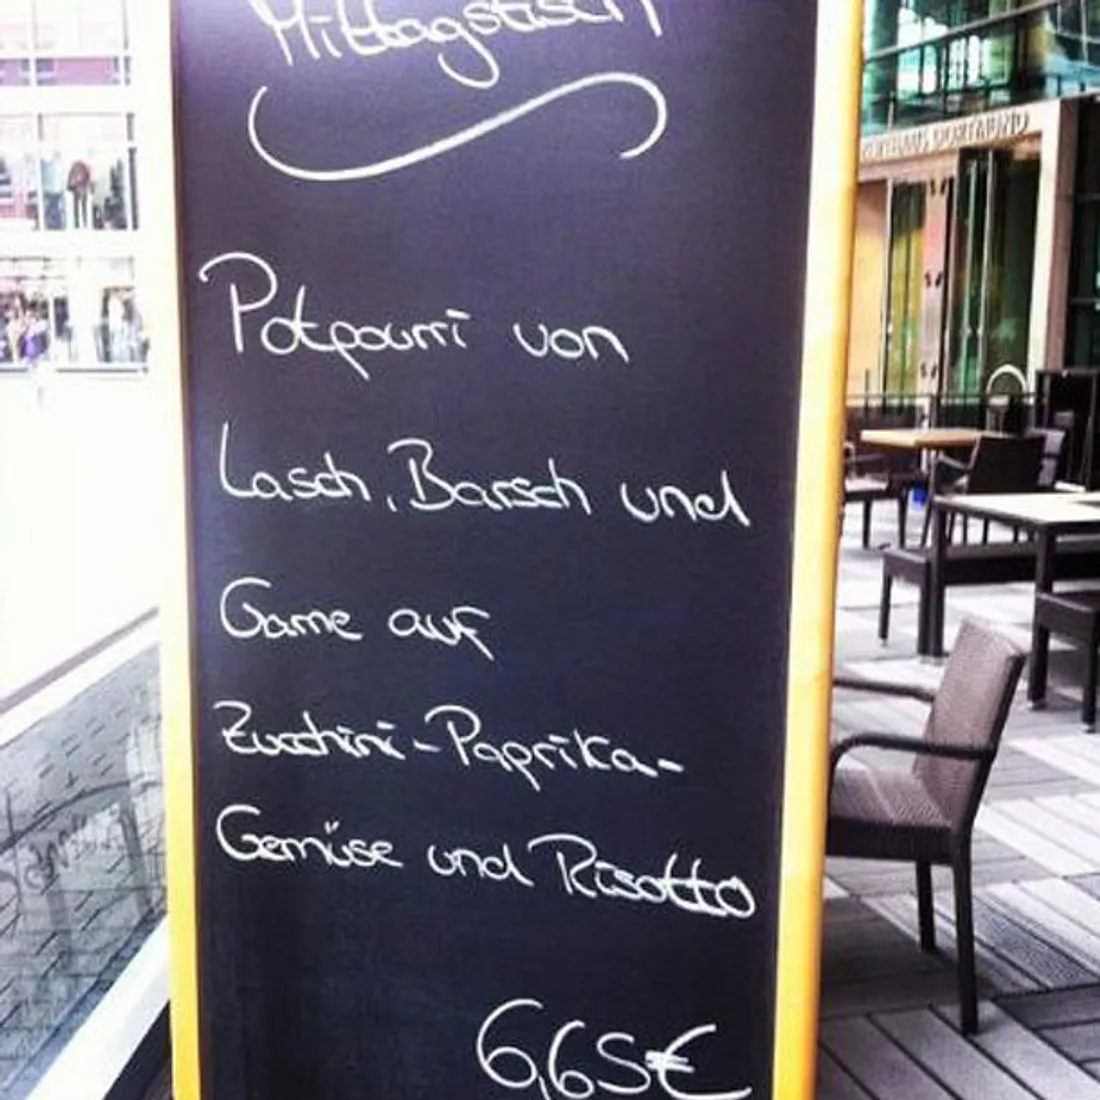 Mittagstisch
Potpourri von
Lasch, Barsch und
Garne auf
Zucchini-Paprika-
Gemüse und Risotto
6,65€
KONZERTHAUS DORTMUND